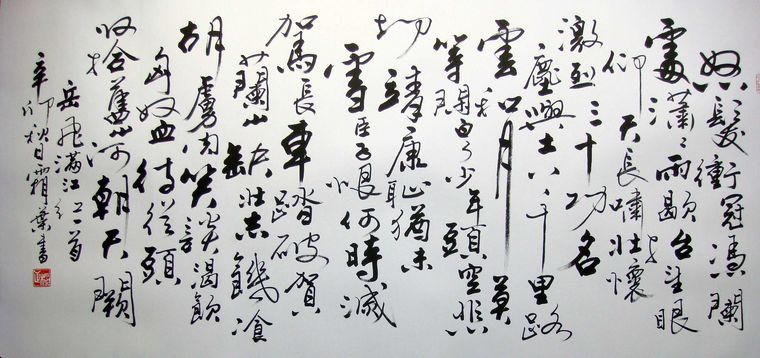 怒髮衝冠馮闌
處瀟瀟雨歇抬望眼
仰天長嘯壯懷
激烈三十功名
塵與土八千里路
雲和月莫
等閑白了少年頭空悲
切靖康恥猶未
雪臣子恨何時滅
駕長車踏破賀
蘭山缺壯志飢飡
胡虜肉笑談渴飲
匈奴血待從頭
收拾舊山河朝天闕
岳飛滿江紅一首
辛卯秋日霜葉書